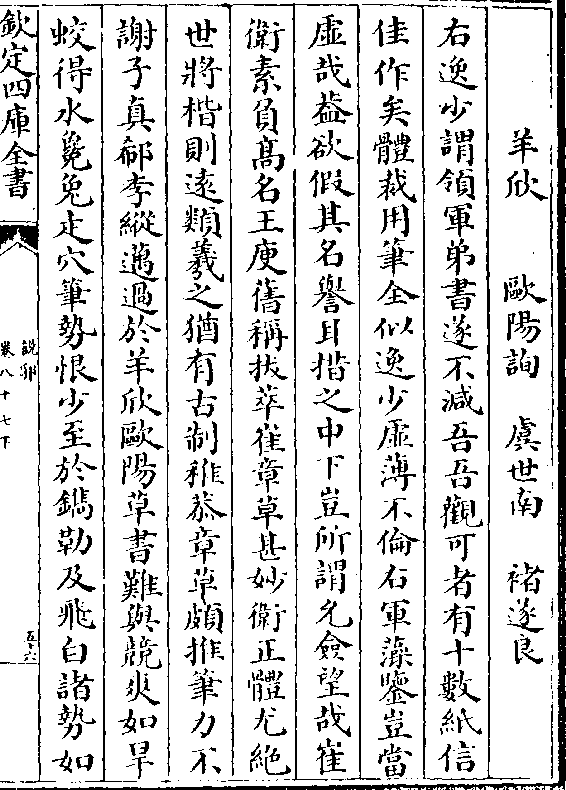 羊欣　歐陽詢　虞世南　褚遂良
右逸少謂領軍弟書遂不減吾吾觀可者有十數紙信
佳作矣體裁用筆全似逸少虛薄不倫右軍藻鑒豈當
虛哉葢欲假其名譽耳揩之中下豈所謂允僉望哉崔
衛素負髙名王庾舊稱拔萃崔章草甚妙衛正體尤絶
世將楷則逺類羲之猶有古制稚恭章草頗推筆力不
謝子真郗李縱邁過於羊欣歐陽草書難與競爽如旱
蛟得水毚兔走穴筆勢恨少至於鐫勒及飛白諸勢如
欽定四庫全書
說郛
卷八十七下
五十六